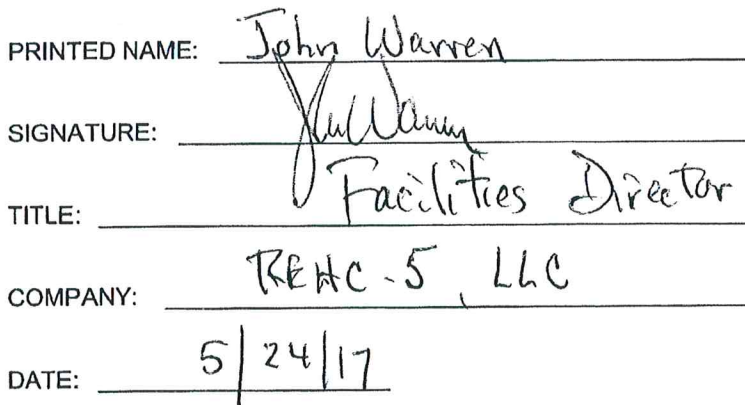 PRINTED NAME: John Warren
SIGNATURE: Jn Warren
TITLE: Facilities Director
COMPANY: REHC-5, LLC
DATE: 5/24/17